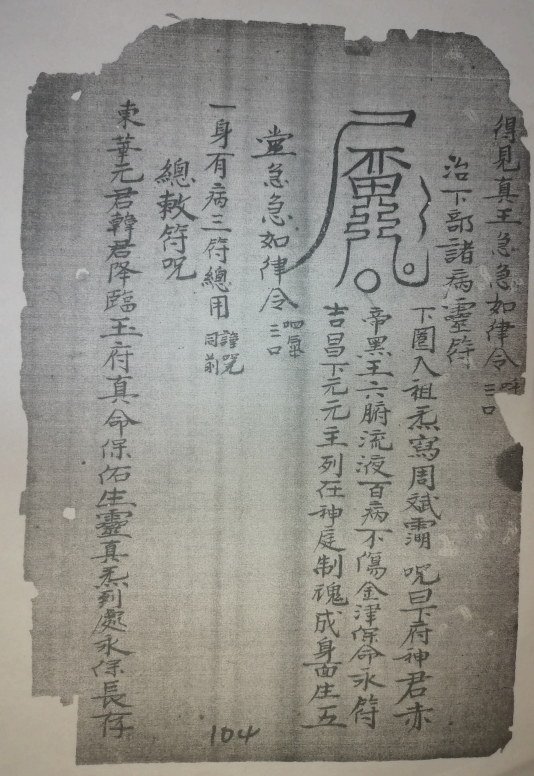 得見真王急急如律令 三口
治下部諸病靈符
下圈入祖炁寫周斌 咒曰下府神君赤
帝黑王六腑流液百病不傷金津保命永符
吉昌下元元主列在神庭制魂成身面生五
堂急急如律令 四氣 三口
一身有病三符總用 諱咒 同前
總敕符咒
東華元君韓君降臨玉府真命保佑生靈真炁到處永保長存
104